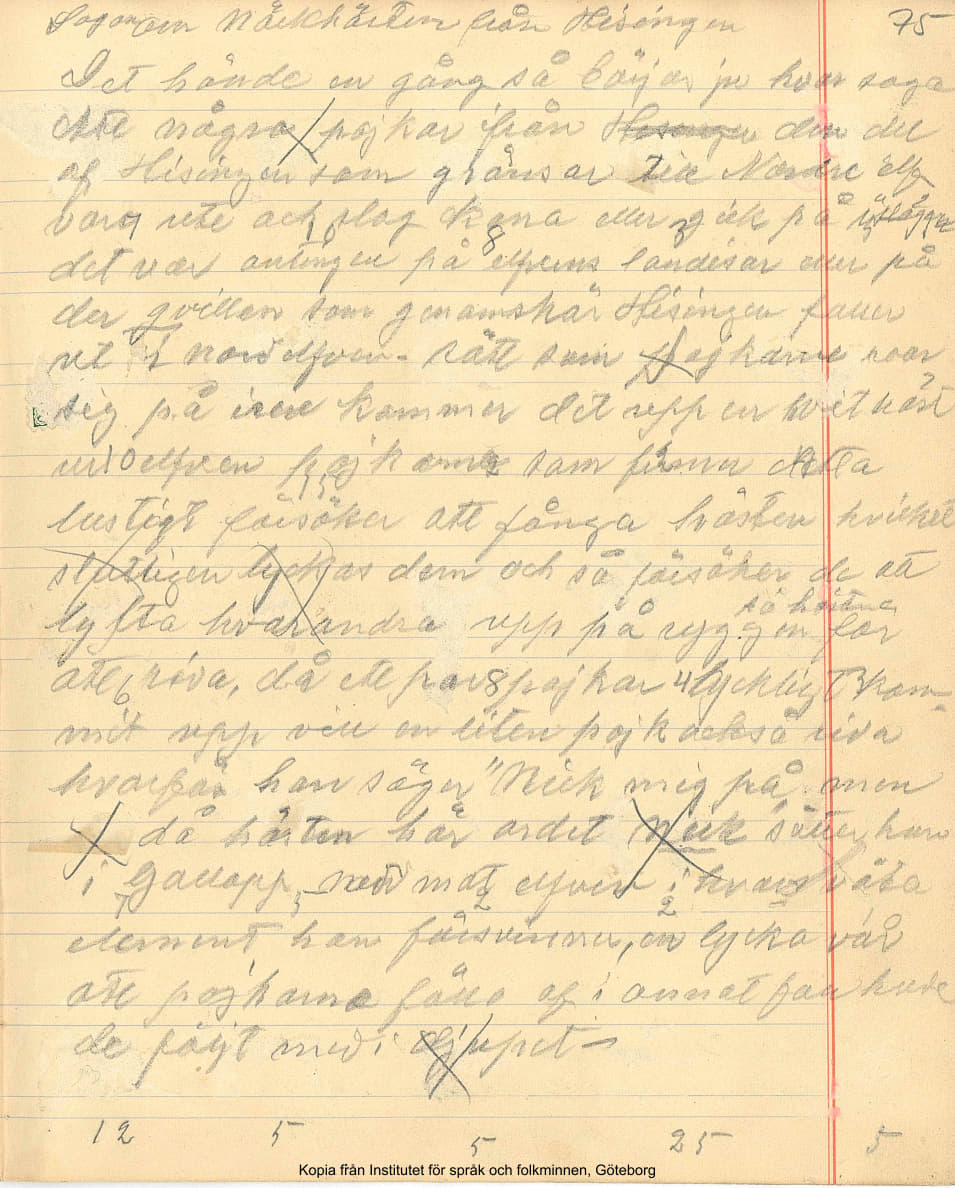 Sagan om Näckhästen från Hisingen 75
Det hände en gång så börjar ju hvar saga
Att några pojkar från Hisingen den del
af Hisingen som gränsar till Nordre elf
voro ute och slog kana eller gick på
det var antingen på elfvens landisar eller på
der qvillen som genomskär Hisingen faller
ut i nordelfven - rätt som pojkarne roar
sig på isen kommer det upp en hvit häst
ur elfven pojkarna som finner detta
lustigt försöker att fånga hästen hvilket
slutligen lyckas dem och så försöker de att
så hästen
lyfta hvarandra upp på ryggen för
att rida, då ett par pojkar lyckligt kom-
mit upp vill en liten pojk också rida
hvarför han säger "Nick mig på men
då hästen hör ordet Nick" sätter han
i Gallopp ned mot elfven i hvars våta
element han försvinner, en lycka var
att pojkarne föllo af i annat fall hade
de följt med i djupet -
12 5 5 25 5
Kopia från Institutet för språk och folkminnen, Göteborg